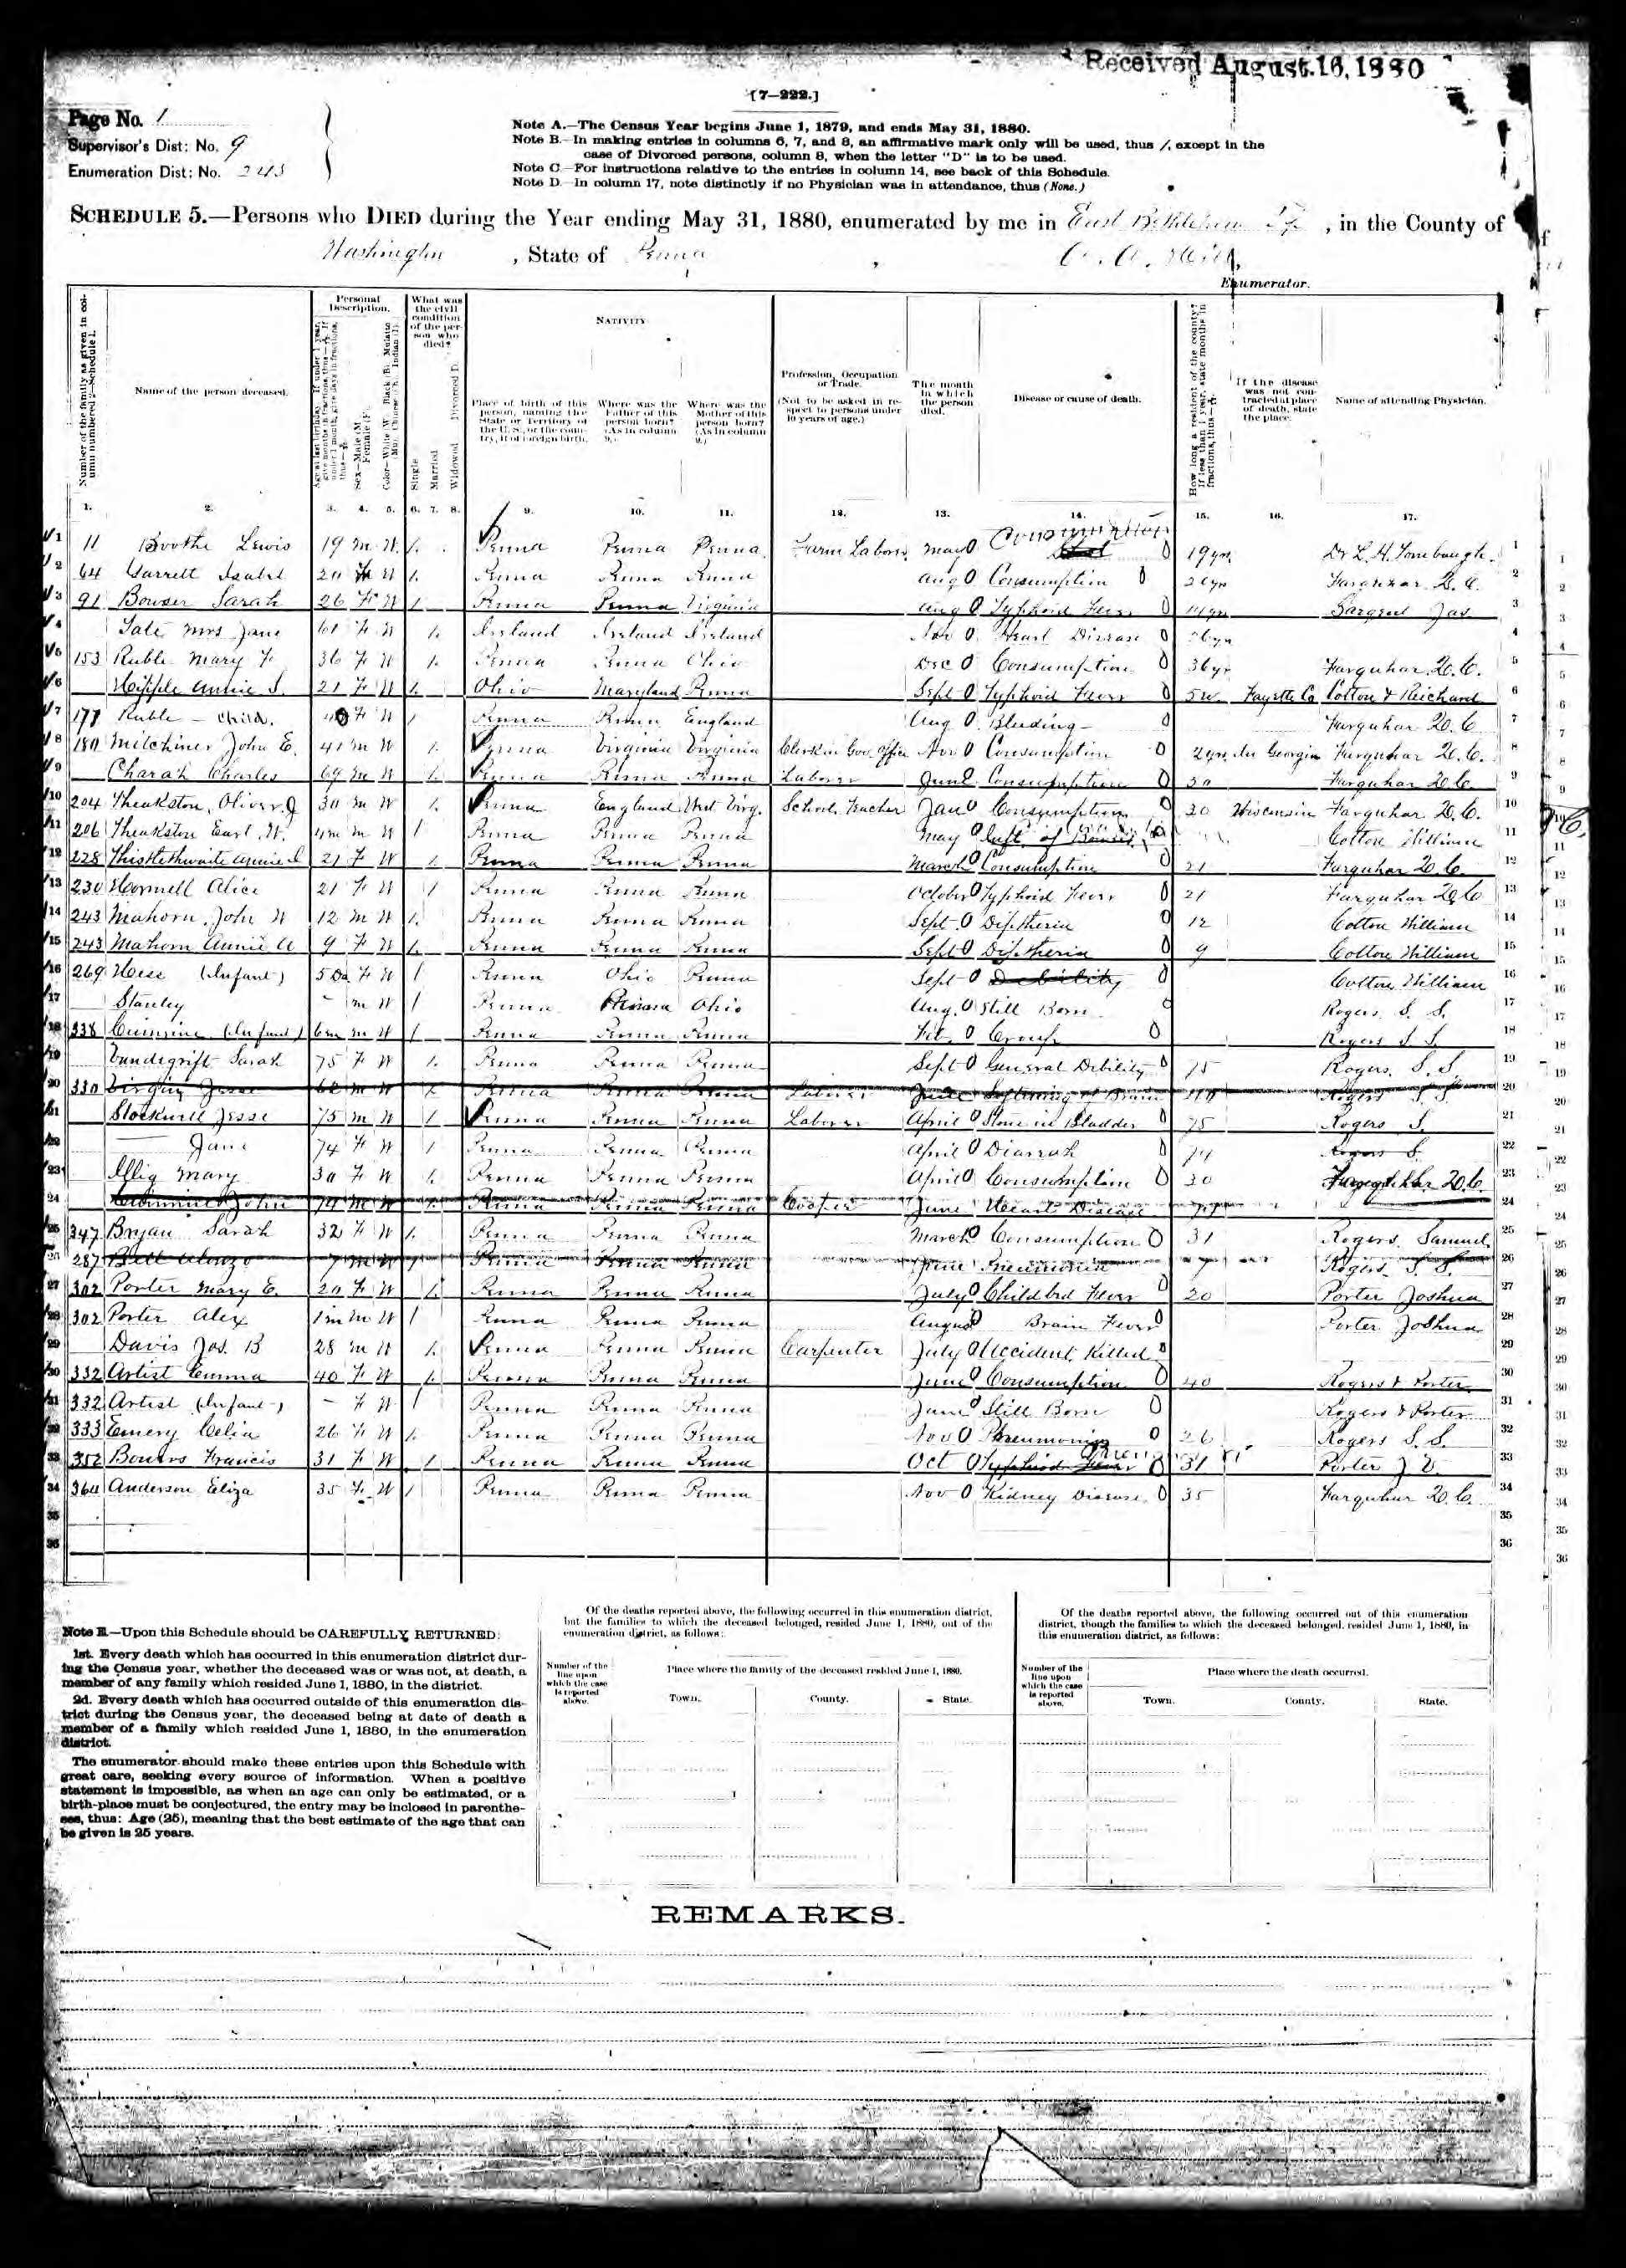 Received August 16, 1880
[7-222.]
Page No. 1
Supervisor's Dist: No. 9
Enumeration Dist: No.
Note A.—The Census Year begins June 1, 1879, and ends May 31, 1880.
Note B.—In making entries in columns 6, 7, and 8, an affirmative mark only will be used, thus /, except in the
case of Divorced persons, column 8, when the letter "D" is to be used.
Note C.—For instructions relative to the entries in column 14, see back of this Schedule.
Note D.—In column 17, note distinctly if no Physician was in attendance, thus (None.)
SCHEDULE 5.—Persons who DIED during the Year ending May 31, 1880, enumerated by me in East Bethlehem Tp, in the County of
Washington, State of Penna
Enumerator.
Number of the family as given in column numbered 2—Schedule 1.
Name of the person deceased.
Personal Description.
What was the civil condition of the person who died?
Single Married Widowed Divorced D.
NATIVITY
Place of birth of this person, naming the State or Territory of the U. S., or the country, if of foreign birth.
Where was the Father of this person born? (As in column 9.)
Where was the Mother of this person born? (As in column 9.)
Profession, Occupation or Trade. (Not to be asked in respect to persons under 10 years of age.)
The month in which the person died.
Disease or cause of death.
How long a resident of the county? If less than 1 year, state months in fractions, thus
If the disease was not contracted at place of death, state the place.
Name of attending Physician.
1. 2. 3. 4. 5. 6. 7. 8. 9. 10. 11. 12. 13. 14. 15. 16. 17.
1 11 Boothe Lewis 19 M W / Penna Penna Penna Farm Laborer May Consumption 19 yrs Dr L. H. 1
2 64 Garrett Isabel 20 F W 1 Penna Penna Penna Aug Consumption 20 yrs Farquhar 2
3 91 Bowser Sarah 26 F W 1 Penna Penna Virginia Aug Typhoid Fever Sargent Jas 3
4 Tate Mrs Jane 61 F W 1 Ireland Ireland Ireland Nov Heart Disease 4
5 153 Ruble Mary F 36 F W 1 Penna Penna Ohio Dec Consumption 36 yr Farquhar 5
6 Hipple Annie S. 21 F W 1 Ohio Maryland Penna Sept Typhoid Fever 5w Fayette Co Cotton & Reichard 6
7 177 Ruble - Child. F W 1 Penna Penna England Aug Bleeding Farquhar 7
8 180 Milchiner John E. 41 M W 1 Penna Virginia Virginia Clerk in Gov. Office Nov Consumption 2 yrs In Georgia Farquhar 8
9 Charah Charles 69 M W 1 Penna Penna Penna Laborer June Consumption 30 Farquhar 9
10 204 Theakston, Oliver J 30 M W 1 Penna England West Virg. School Teacher Jan Consumption 30 Wisconsin Farquhar 10
11 206 Theakston Earl W. 4m M W 1 Penna Penna Penna May Cotton William 11
12 228 Thistlethwaite Annie 21 F W 1 Penna Penna Penna March Consumption 21 Farquhar 12
13 230 Hormell Alice 21 F W 1 Penna Penna Penna October Typhoid Fever 21 Farquhar 13
14 243 Mahorn John W 12 M W 1 Penna Penna Penna Sept Diptheria 12 Cotton William 14
15 243 Mahorn Annie A 9 F W 1 Penna Penna Penna Sept Diptheria 9 Cotton William 15
16 269 Heise (Infant) 5 Da F W 1 Penna Ohio Penna Sept Debility Cotton William 16
17 Stanley - M W 1 Penna Penna Ohio Aug. Still Born Rogers S. S. 17
18 338 (Infant) 6m M W 1 Penna Penna Penna Feb. Croup Rogers S S 18
19 Vandegrift Sarah 75 F W 1 Penna Penna Penna Sept General Debility 75 Rogers, S. S. 19
20 330 Jesse M W Penna Penna Penna Laborer June Softening of Brain Rogers S S 20
21 Stockwell Jesse 75 M W 1 Penna Penna Penna Laborer April Stone in Bladder 75 Rogers S. 21
22 Jane 74 F W Penna Penna Penna April Diarrah 74 Rogers S. 22
23 Illig Mary 30 F W 1 Penna Penna Penna April Consumption 30 Farquhar 23
24 John 74 M W Penna Penna Penna Cooper June Heart Disease 24
25 347 Bryan Sarah 32 F W 1 Penna Penna Penna March Consumption 31 Rogers, Samuel 25
26 287 Bell Alonzo 7 M W 1 Penna Penna Penna June Pneumonia 7 Rogers S. S. 26
27 302 Porter Mary E. 20 F W 1 Penna Penna Penna July Childbed Fever 20 Porter Joshua 27
28 302 Porter Alex 1m M W 1 Penna Penna Penna August Brain Fever Porter Joshua 28
29 Davis Jas. B 28 M W 1 Penna Penna Penna Carpenter July Accident, Killed 29
30 332 Artist Emma 40 F W 1 Penna Penna Penna June Consumption 40 Rogers & Porter 30
31 332 Artist (Infant) - F W 1 Penna Penna Penna June Still Born Rogers & Porter 31
32 333 Emery Celia 26 F W 1 Penna Penna Penna Nov Pneumonia 26 Rogers S. S. 32
33 352 Bowers Francis 31 F W 1 Penna Penna Penna Oct Typhoid Fever 31 Porter J 33
34 364 Anderson Eliza 35 F W 1 Penna Penna Penna Nov Kidney Disease 35 Farquhar 34
35 35
36 36
Note E.—Upon this Schedule should be CAREFULLY RETURNED:
1st. Every death which has occurred in this enumeration district during
the Census year, whether the deceased was or was not, at death, a
member of any family which resided June 1, 1880, in the district.
2d. Every death which has occurred outside of this enumeration district
during the Census year, the deceased being at date of death a
member of a family which resided June 1, 1880, in the enumeration
district.
The enumerator should make these entries upon this Schedule with
great care, seeking every source of information. When a positive
statement is impossible, as when an age can only be estimated, or a
birth-place must be conjectured, the entry may be inclosed in parentheses,
thus: Age (25), meaning that the best estimate of the age that can
be given is 25 years.
Of the deaths reported above, the following occurred in this enumeration district,
but the families to which the deceased belonged, resided June 1, 1880, out of the
enumeration district, as follows:
Number of the line upon which the case is reported above.
Place where the family of the deceased resided June 1, 1880.
Town. County. State.
Of the deaths reported above, the following occurred out of this enumeration
district, though the families to which the deceased belonged, resided June 1, 1880, in
this enumeration district, as follows:
Number of the line upon which the case is reported above.
Place where the death occurred.
Town. County. State.
REMARKS.